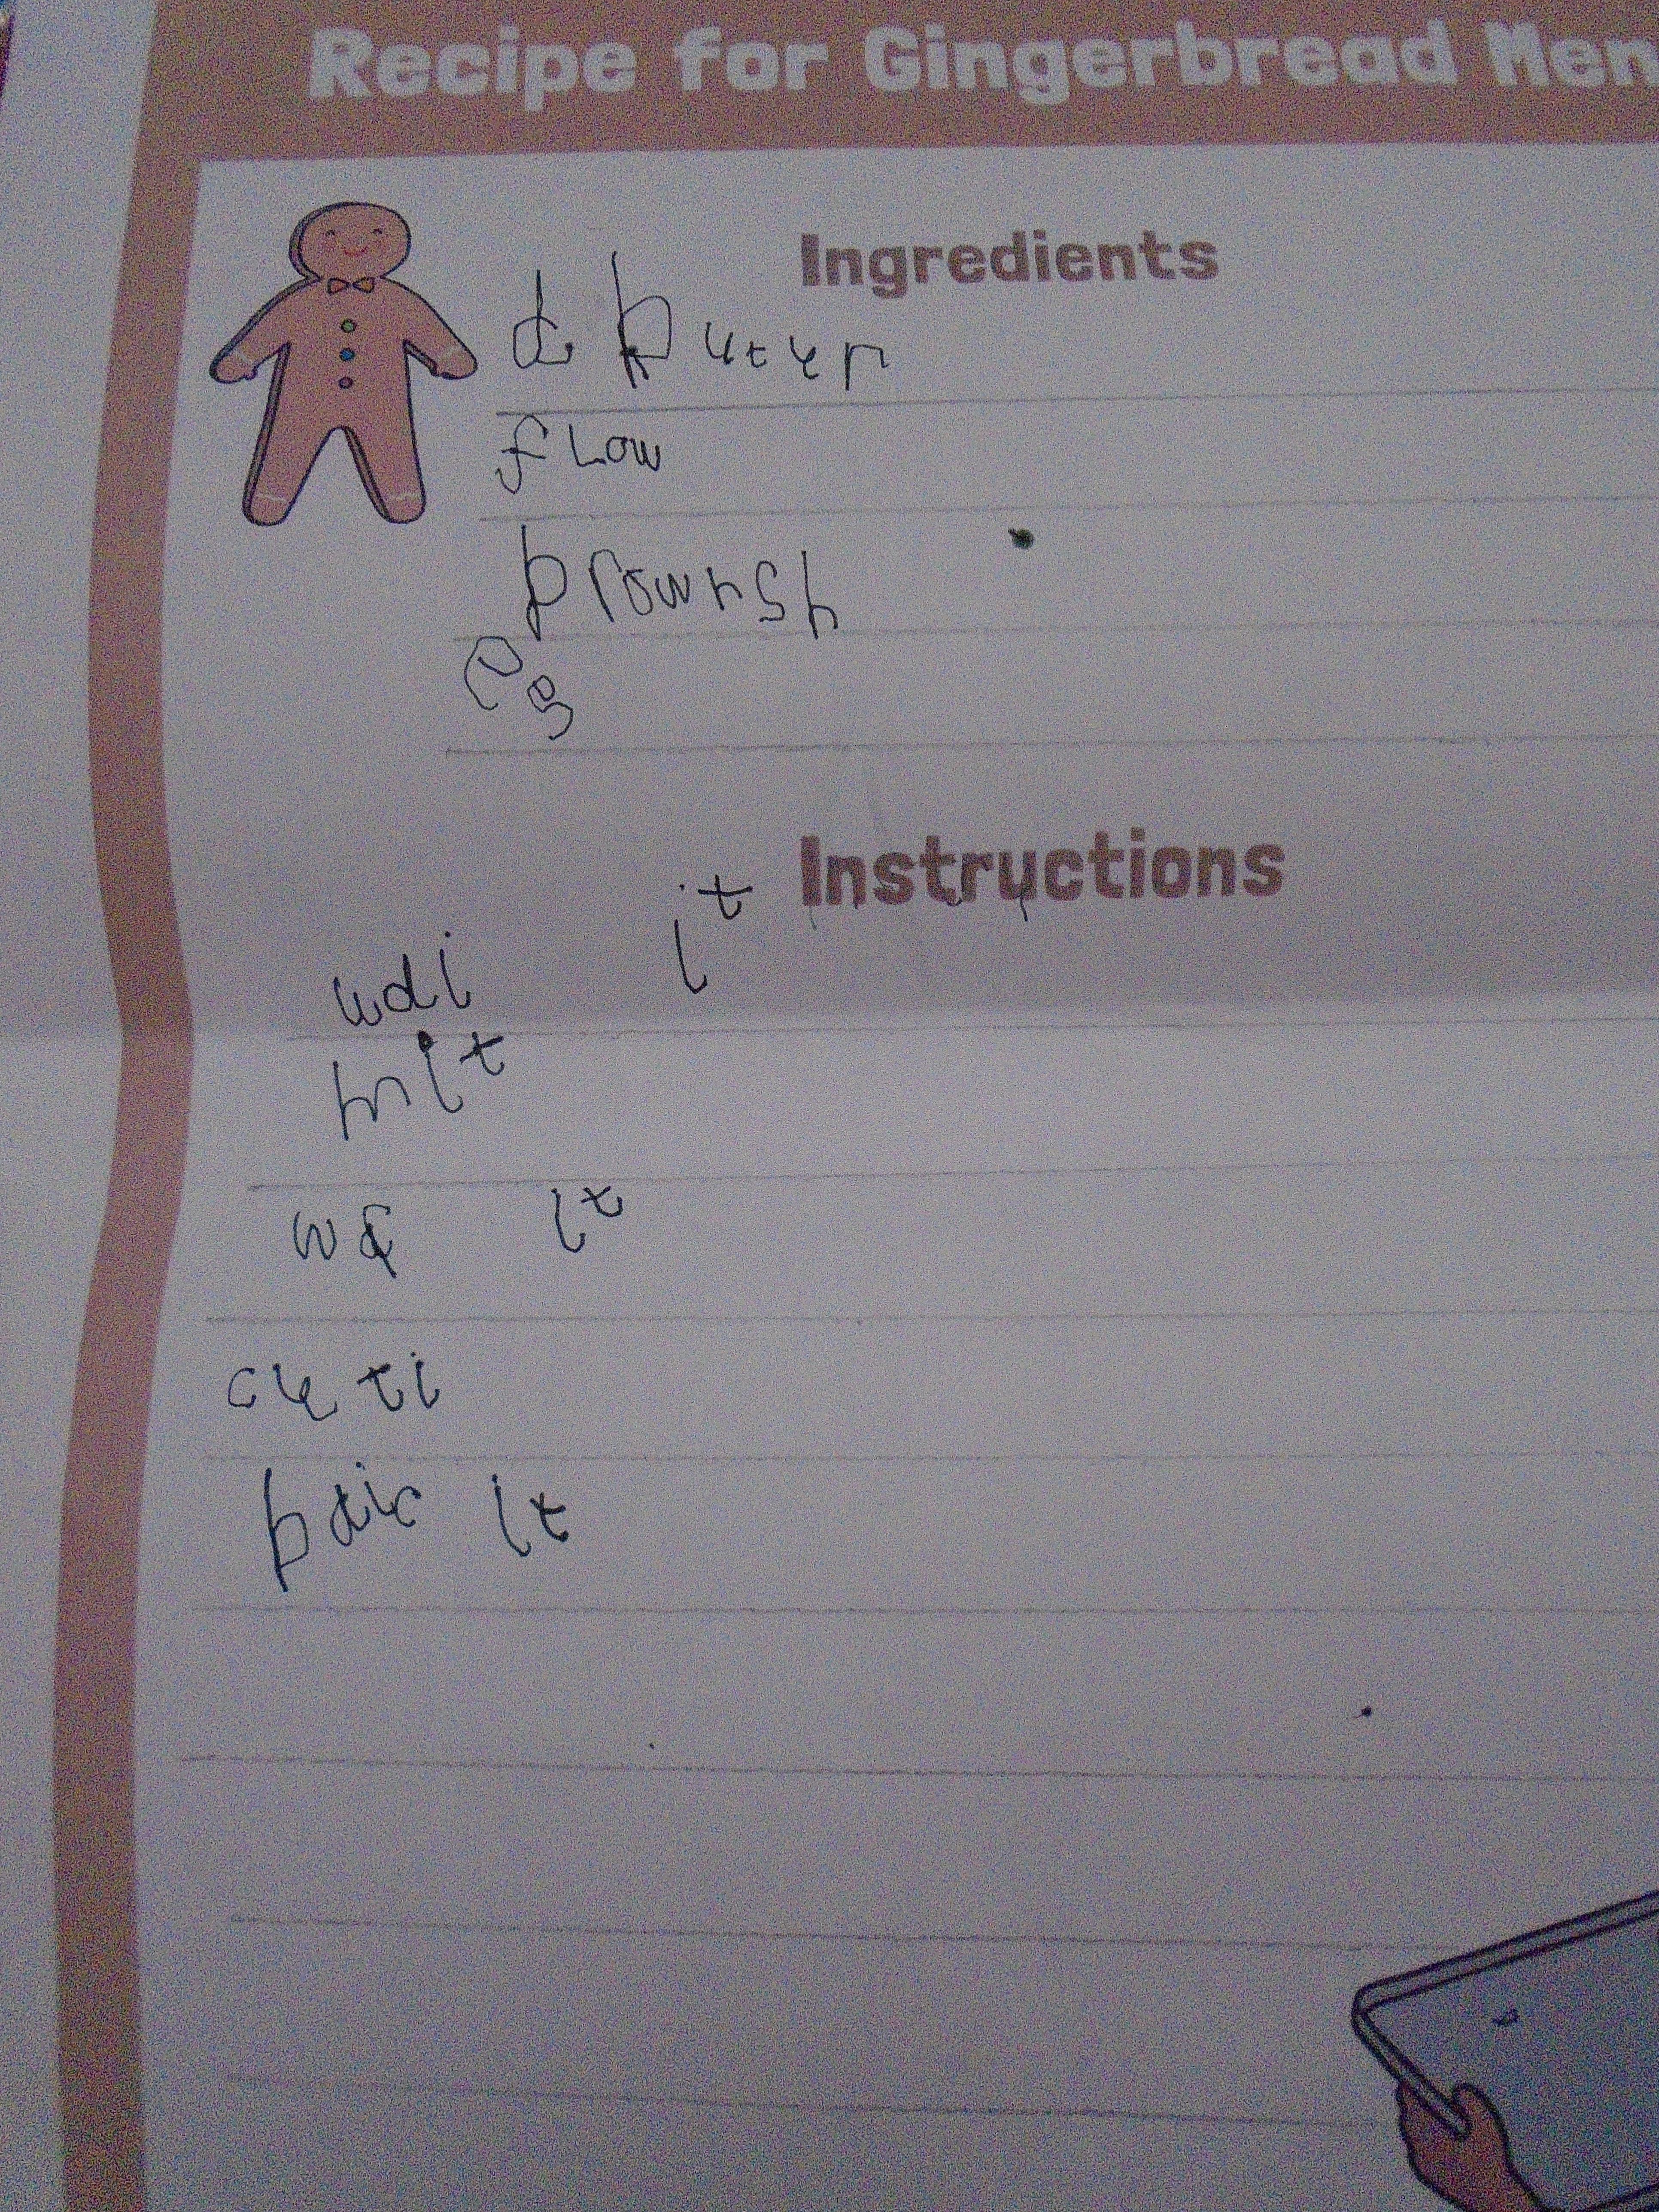 Recipe for Gingerbread Men
Ingredients
buter
flow
brownsh
eg
Instructions
it
mit
it
cuti
baic it